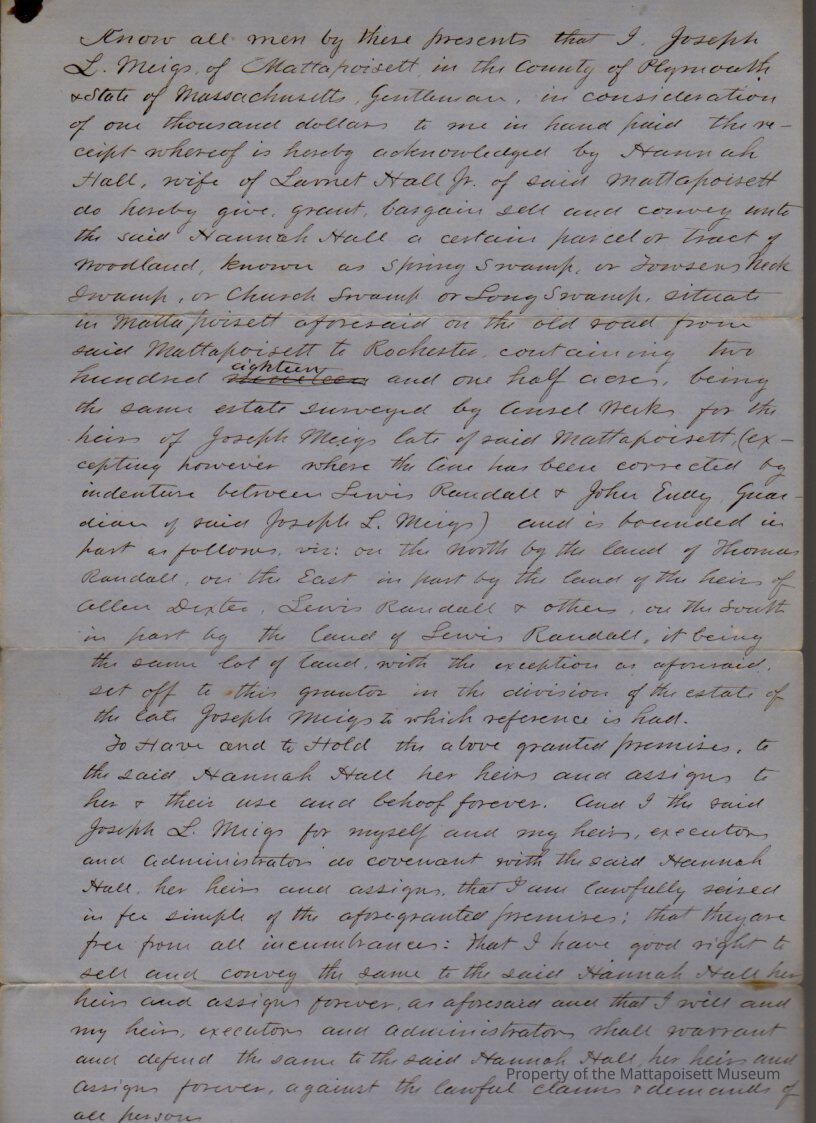 Know all men by these presents that I, Joseph
L. Meigs, of Mattapoisett, in the County of Plymouth
& State of Massachusetts, Gentleman, in consideration
of one thousand dollars to me in hand paid the re-
ceipt whereof is hereby acknowledged by Hannah
Hall, wife of Hall Jr. of said Mattapoisett
do hereby give, grant, bargain sell and convey unto
the said Hannah Hall a certain parcel or tract of
woodland, known as Spring Swamp, or Towsers Neck
Swamp, or Church Swamp or Long Swamp, situate
in Mattapoisett aforesaid on the old road from
said Mattapoisett to Rochester, containing two
hundred eighteen and one half acres, being
the same estate surveyed by Ansel Weeks for the
heirs of Joseph Meigs late of said Mattapoisett, (ex-
cepting however where the line has been corrected by
indenture between Lewis Randall & John Guar-
dian of said Joseph L. Meigs) and is bounded in
part as follows, viz: on the north by the land of Thomas
Randall, on the East in part by the land of the heirs of
Allen Dexter, Lewis Randall & others, on the South
in part by the land of Lewis Randall, it being
the same lot of land, with the exception as aforesaid,
set off to this grantor in the division of the estate of
the late Joseph Meigs to which reference is had.
To Have and to Hold the above granted premises, to
the said Hannah Hall her heirs and assigns to
her & their use and behoof forever. And I the said
Joseph L. Meigs for myself and my heirs, executors
and administrators do covenant with the said Hannah
Hall, her heirs and assigns, that I am lawfully seized
in fee simple of the aforegranted premises; that they are
free from all incumbrances: that I have good right to
sell and convey the same to the said Hannah Hall her
heirs and assigns forever, as aforesaid and that I will and
my heirs, executors and administrators shall warrant
and defend the same to the said Hannah Hall, her heirs and
assigns forever, against the lawful claims & demands of
all persons
Property of the Mattapoisett Museum